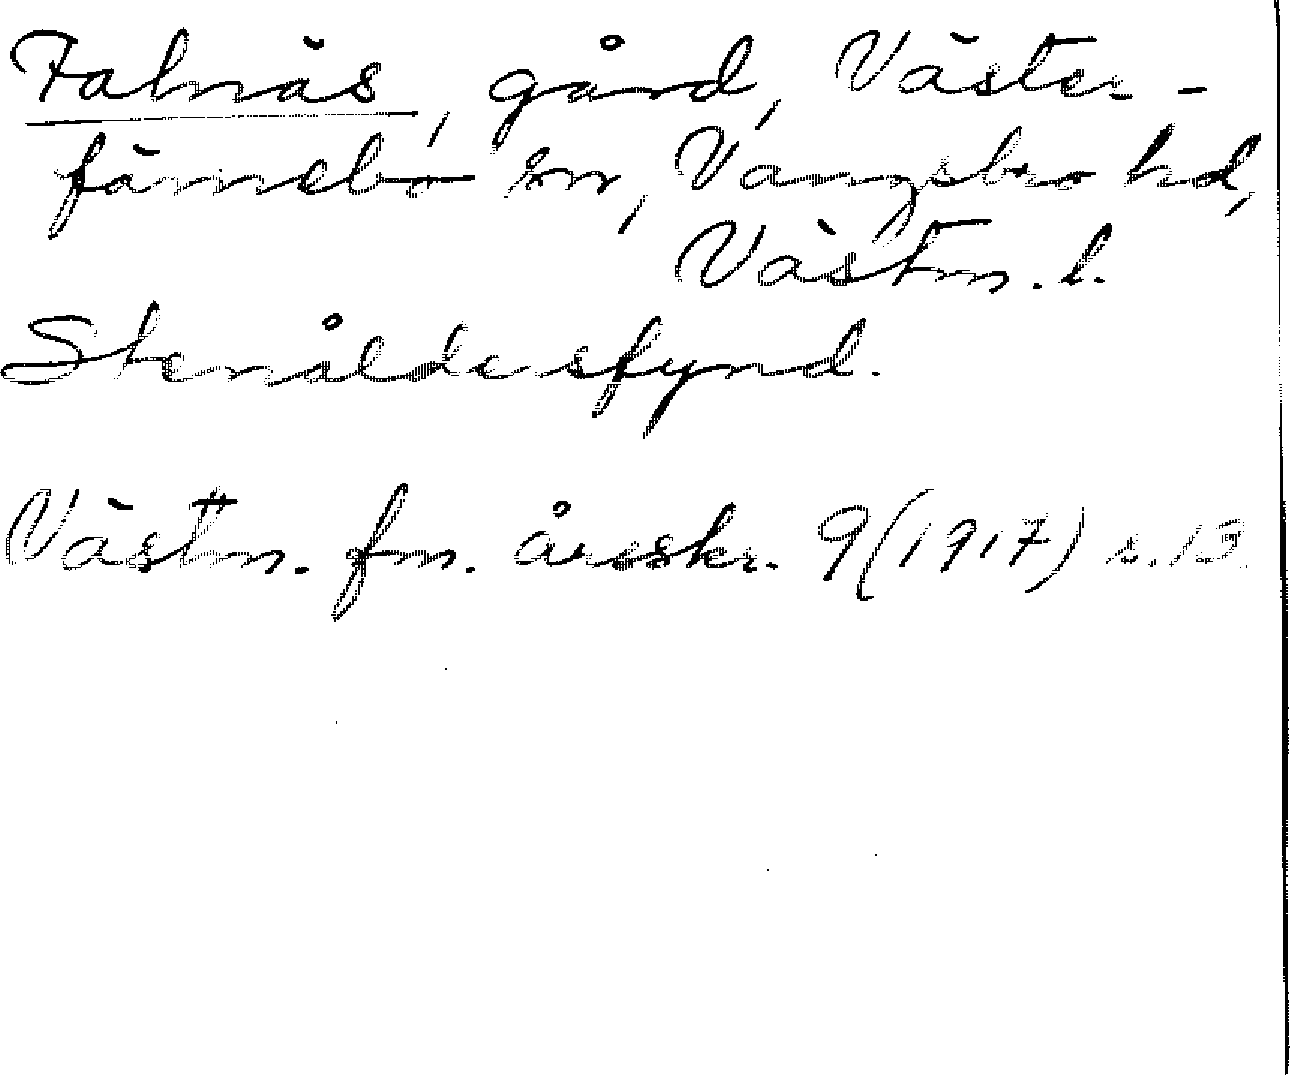 Falnäs, gård, Väster-
färnebo sn, Vangsbro hd,
Västm. l.
Stenåldersfynd.
Västm. fm. årsskr. 9 (1917) s. 13.